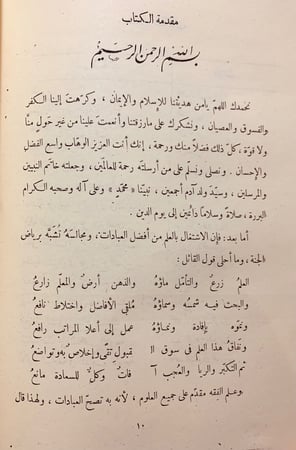 مقدمة الكتاب
بسم الله الرحمن الرحيم
نحمدك اللهمّ يامن هديتنا للإسلام والإيمان ، وكرّهت إلينا الكفر
والفسوق والعصيان ، ونشكرك على مارزقتنا وأنعمت علينا من غير حَول منّا
ولا قوّة ، كلّ ذلك فضلاً منك ورحمة ، إنك أنت العزيز الوهّاب واسع الفضل
والإحسان . ونصلى ونسلّم على من أرسلته رحمة للعالمين ، وجعلته خاتم النبيين
والمرسلين ، وسيّد ولد آدم أجمعين ، نبيّنا « محمّدٍ » وعلى آله وصحبه الكرام
البررة ، صلاةً وسلاماً دائمَين إلى يوم الدين .
أما بعد : فإن الاشتغال بالعلم من أفضل العبادات ، ومجالسهُ تُشبَّه برياض
الجنة ، وما أحلى قول القائل :
العلمُ زرعٌ والتأمّل ماؤهُ والذهن أرضٌ والمعلّم زارعُ
والبحث فيه شمسُهُ وسماؤه مُلقِى الأفاضل واختلاط نافعُ
ونموّه بإفادة ونماؤه عمل إلى أعلا المراتب رافعُ
ونَفاقُ هذا العلم فى سوق الـ قبولِ تقًى وإخلاصٌ به وتواضعُ
ثم التكبّر والريا والعُجب آ فاتٌ وكلٌّ للسعادة مانعُ
وعلم الفقه مقدّم على جميع العلوم ، لأنه به تصحّ العبادات ، ولهذا قال
١٠